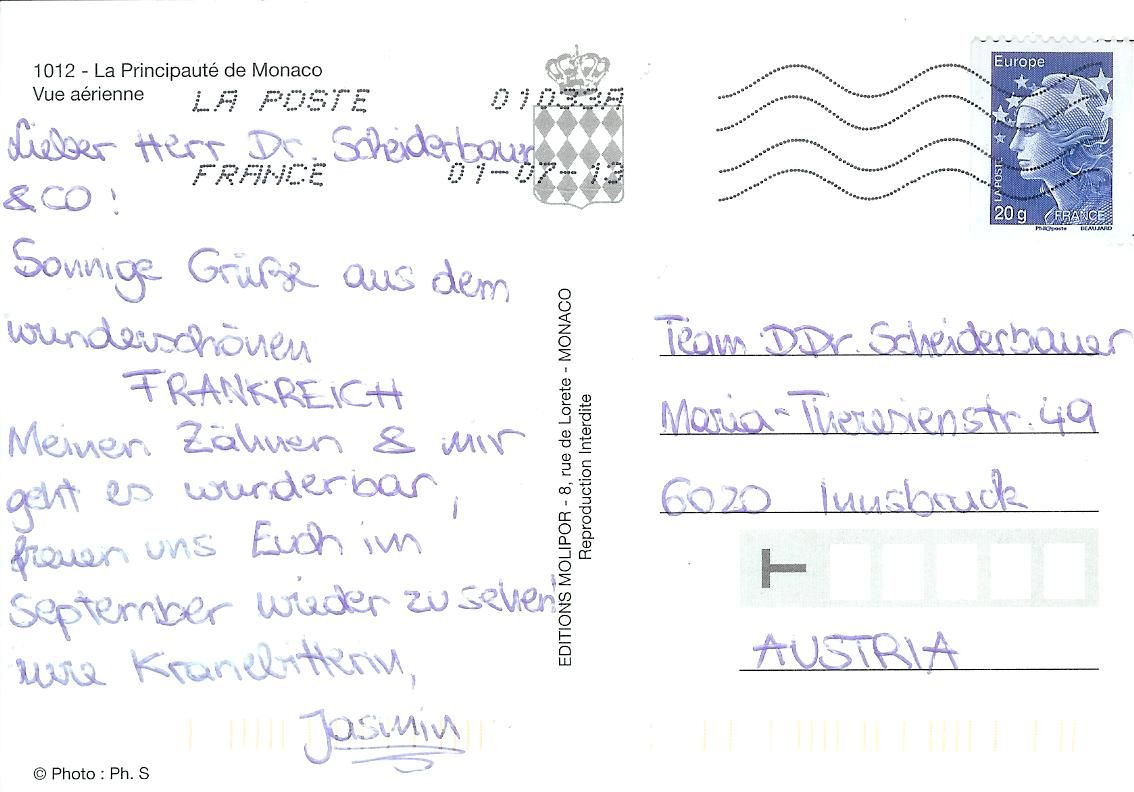 1012 - La Principauté de Monaco
Vue aérienne
LA POSTE 01033A
FRANCE 01-07-13
Lieber Herr Dr. Scheiderbauer
&CO!
Sonnige Grüße aus dem
wunderschönen
FRANKREICH
Meinen Zähnen & mir
geht es wunderbar,
freuen uns Euch im
September wieder zu sehen!
eure Kranebitterin,
Jasmin
© Photo : Ph. S
EDITIONS MOLIPOR - 8, rue de Lorete - MONACO
Reproduction Interdite
Europe
LA POSTE
20 g FRANCE
Phil@poste BEAUJARD
Team DDr. Scheiderbauer
Maria-Theresienstr. 49
6020 Innsbruck
T
AUSTRIA